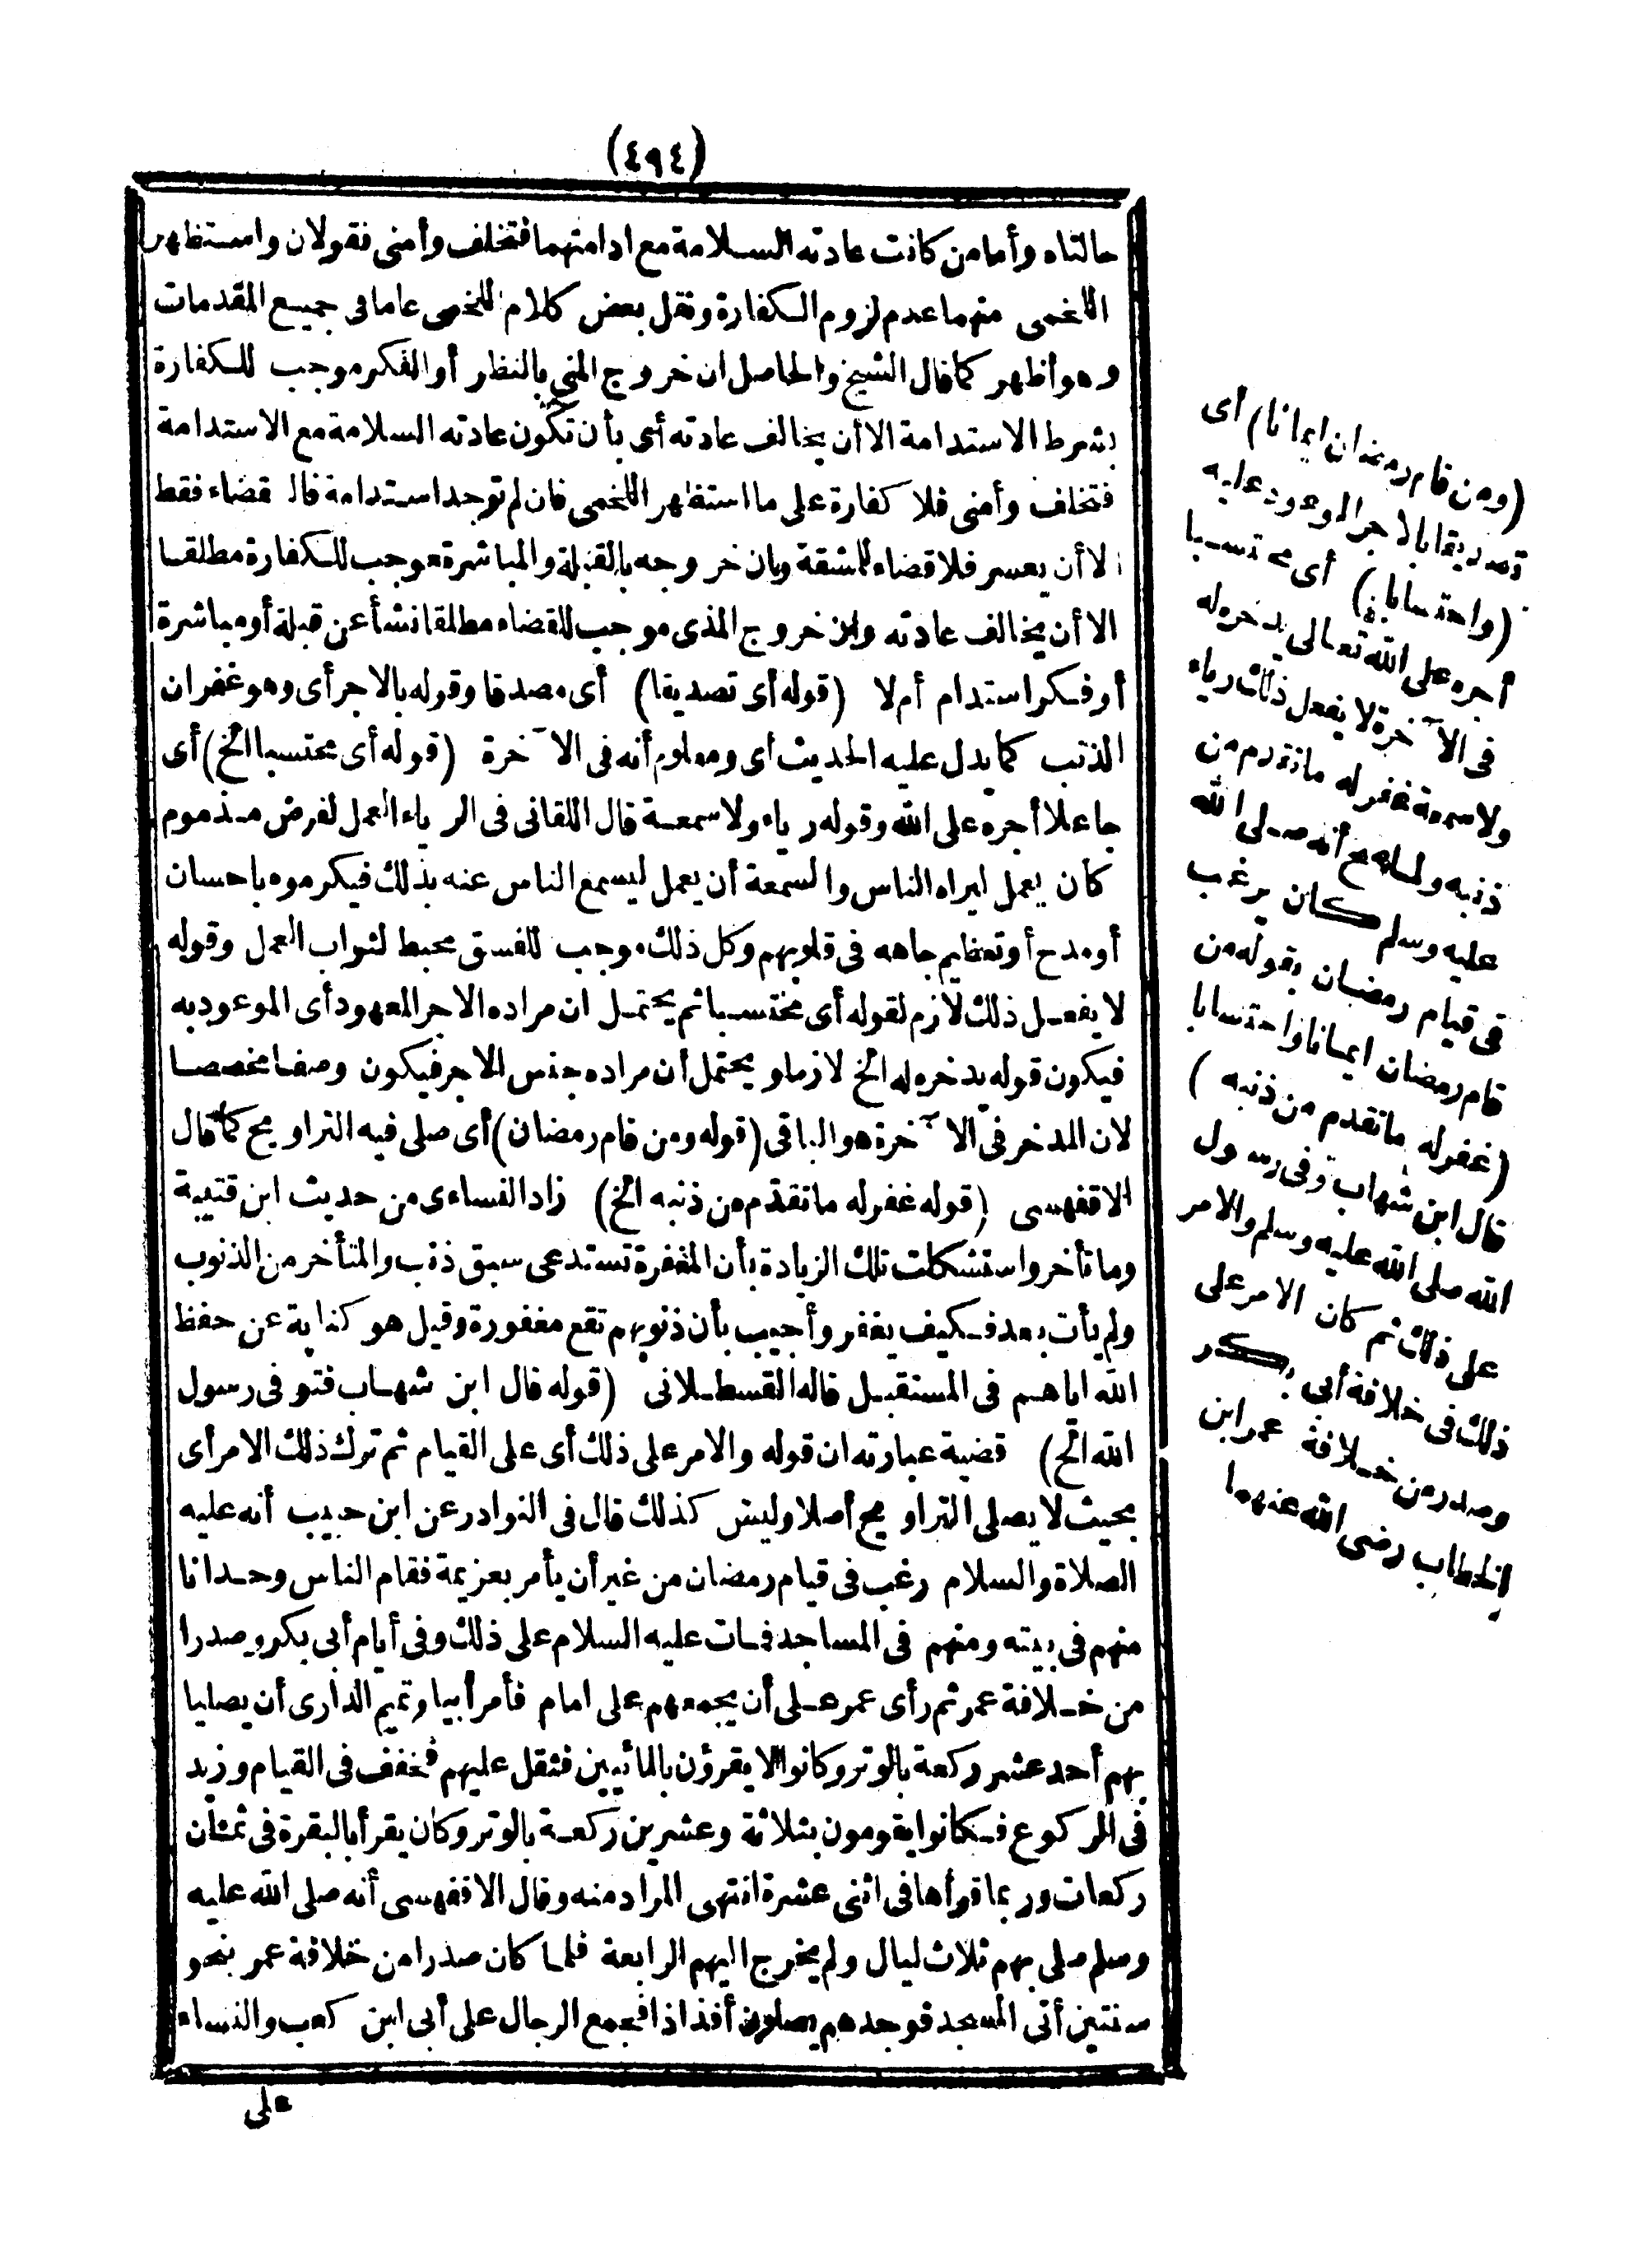 (٤٩٤)
حالتاه وأما من كانت عادته السلامة مع ادامتهما فتخلف وأمنى فقولان واستظهر
اللخمى منهما عدم لزوم الكفارة ونقل بعض كلام اللخمى عاما فى جميع المقدمات
وهو أظهر كما قال الشيخ والحاصل ان خروج المنى بالنظر أو الفكر موجب للكفارة
بشرط الاستدامة الا أن يخالف عادته أى بأن تكون عادته السلامة مع الاستدامة
فتخلف وأمنى فلا كفارة على ما استظهر اللخمى فان لم توجد استدامة فالقضاء فقط
الا أن يعسر فلا قضاء للمشقة وبان خروجه بالقبلة والمباشرة موجب للكفارة مطلقا
الا أن يخالف عادته وان خروج المذى موجب للقضاء مطلقا نشأ عن قبلة أو مباشرة
أو فكر استدام أم لا (قوله أى تصديقا) أى مصدقا وقوله بالاجر أى وهو غفران
الذنب كما يدل عليه الحديث أى ومعلوم أنه فى الآخرة (قوله أى محتسبا الخ) أى
جاعلا أجره على الله وقوله رياء ولا سمعة قال اللقانى فى الرياء العمل لغرض مذموم
كأن يعمل ليراه الناس والسمعة أن يعمل ليسمع الناس عنه بذلك فيكرموه باحسان
أو مدح أو تعظيم جاهه فى قلوبهم وكل ذلك موجب للفسق محبط لثواب العمل وقوله
لا يفعل ذلك لازم لقوله أى محتسبا ثم يحتمل ان مراده الاجر المعهود أى الموعود به
فيكون قوله يدخره له الخ لازما ويحتمل أن مراده جنس الاجر فيكون وصفا مخصصا
لان المدخر فى الآخرة هو الباقى (قوله ومن قام رمضان) أى صلى فيه التراويح كما قال
الاقفهسى (قوله غفر له ما تقدم من ذنبه الخ) زاد النساءى من حديث ابن قتيبة
وما تأخر واستشكلت تلك الزيادة بأن المغفرة تستدعى سبق ذنب والمتأخر من الذنوب
ولم يأت بعد فكيف يغفر وأجيب بأن ذنوبهم تقع مغفورة وقيل هو كناية عن حفظ
الله اياهم فى المستقبل قاله القسطلانى (قوله قال ابن شهاب فتوفى رسول
الله الخ) قضية عبارته ان قوله والامر على ذلك أى على القيام ثم ترك ذلك الامر أى
بحيث لا يصلى التراويح أصلا وليس كذلك قال فى النوادر عن ابن حبيب أنه عليه
الصلاة والسلام رغب فى قيام رمضان من غير أن يأمر بعزيمة فقام الناس وحدانا
منهم فى بيته ومنهم فى المساجد فمات عليه السلام على ذلك وفى أيام أبى بكر وصدرا
من خلافة عمر ثم رأى عمر على أن يجمعهم على امام فأمر أبيا وتميم الدارى أن يصليا
بهم أحد عشر ركعة بالوتر وكانوا لا يقرؤن بالمائيين فثقل عليهم فخفف فى القيام وزيد
فى الركوع فكانوا يقومون بثلاثة وعشرين ركعة بالوتر وكان يقرأ بالبقرة فى ثمان
ركعات وربما قرأها فى اثنى عشرة انتهى المراد منه وقال الاقفهسى أنه صلى الله عليه
وسلم صلى بهم ثلاث ليال ولم يخرج اليهم الرابعة فلما كان صدرا من خلافة عمر بنحو
سنتين أتى المسجد فوجدهم يصلون أفذاذا فجمع الرجال على أبى ابن كعب والنساء
على
(ومن قام رمضان ايمانا) أى
تصديقا بالاجر الموعود عليه
(واحتسابا) أى محتسبا
أجره على الله تعالى يدخره له
فى الآخرة لا يفعل ذلك رياء
ولا سمعة غفر له ما تقدم من
ذنبه ولما صح أنه صلى الله
عليه وسلم كان يرغب
فى قيام رمضان بقوله من
قام رمضان ايمانا واحتسابا
(غفر له ما تقدم من ذنبه)
قال ابن شهاب توفى رسول
الله صلى الله عليه وسلم والامر
على ذلك ثم كان الامر على
ذلك فى خلافة أبى بكر
وصدر من خلافة عمر ابن
الخطاب رضى الله عنهما